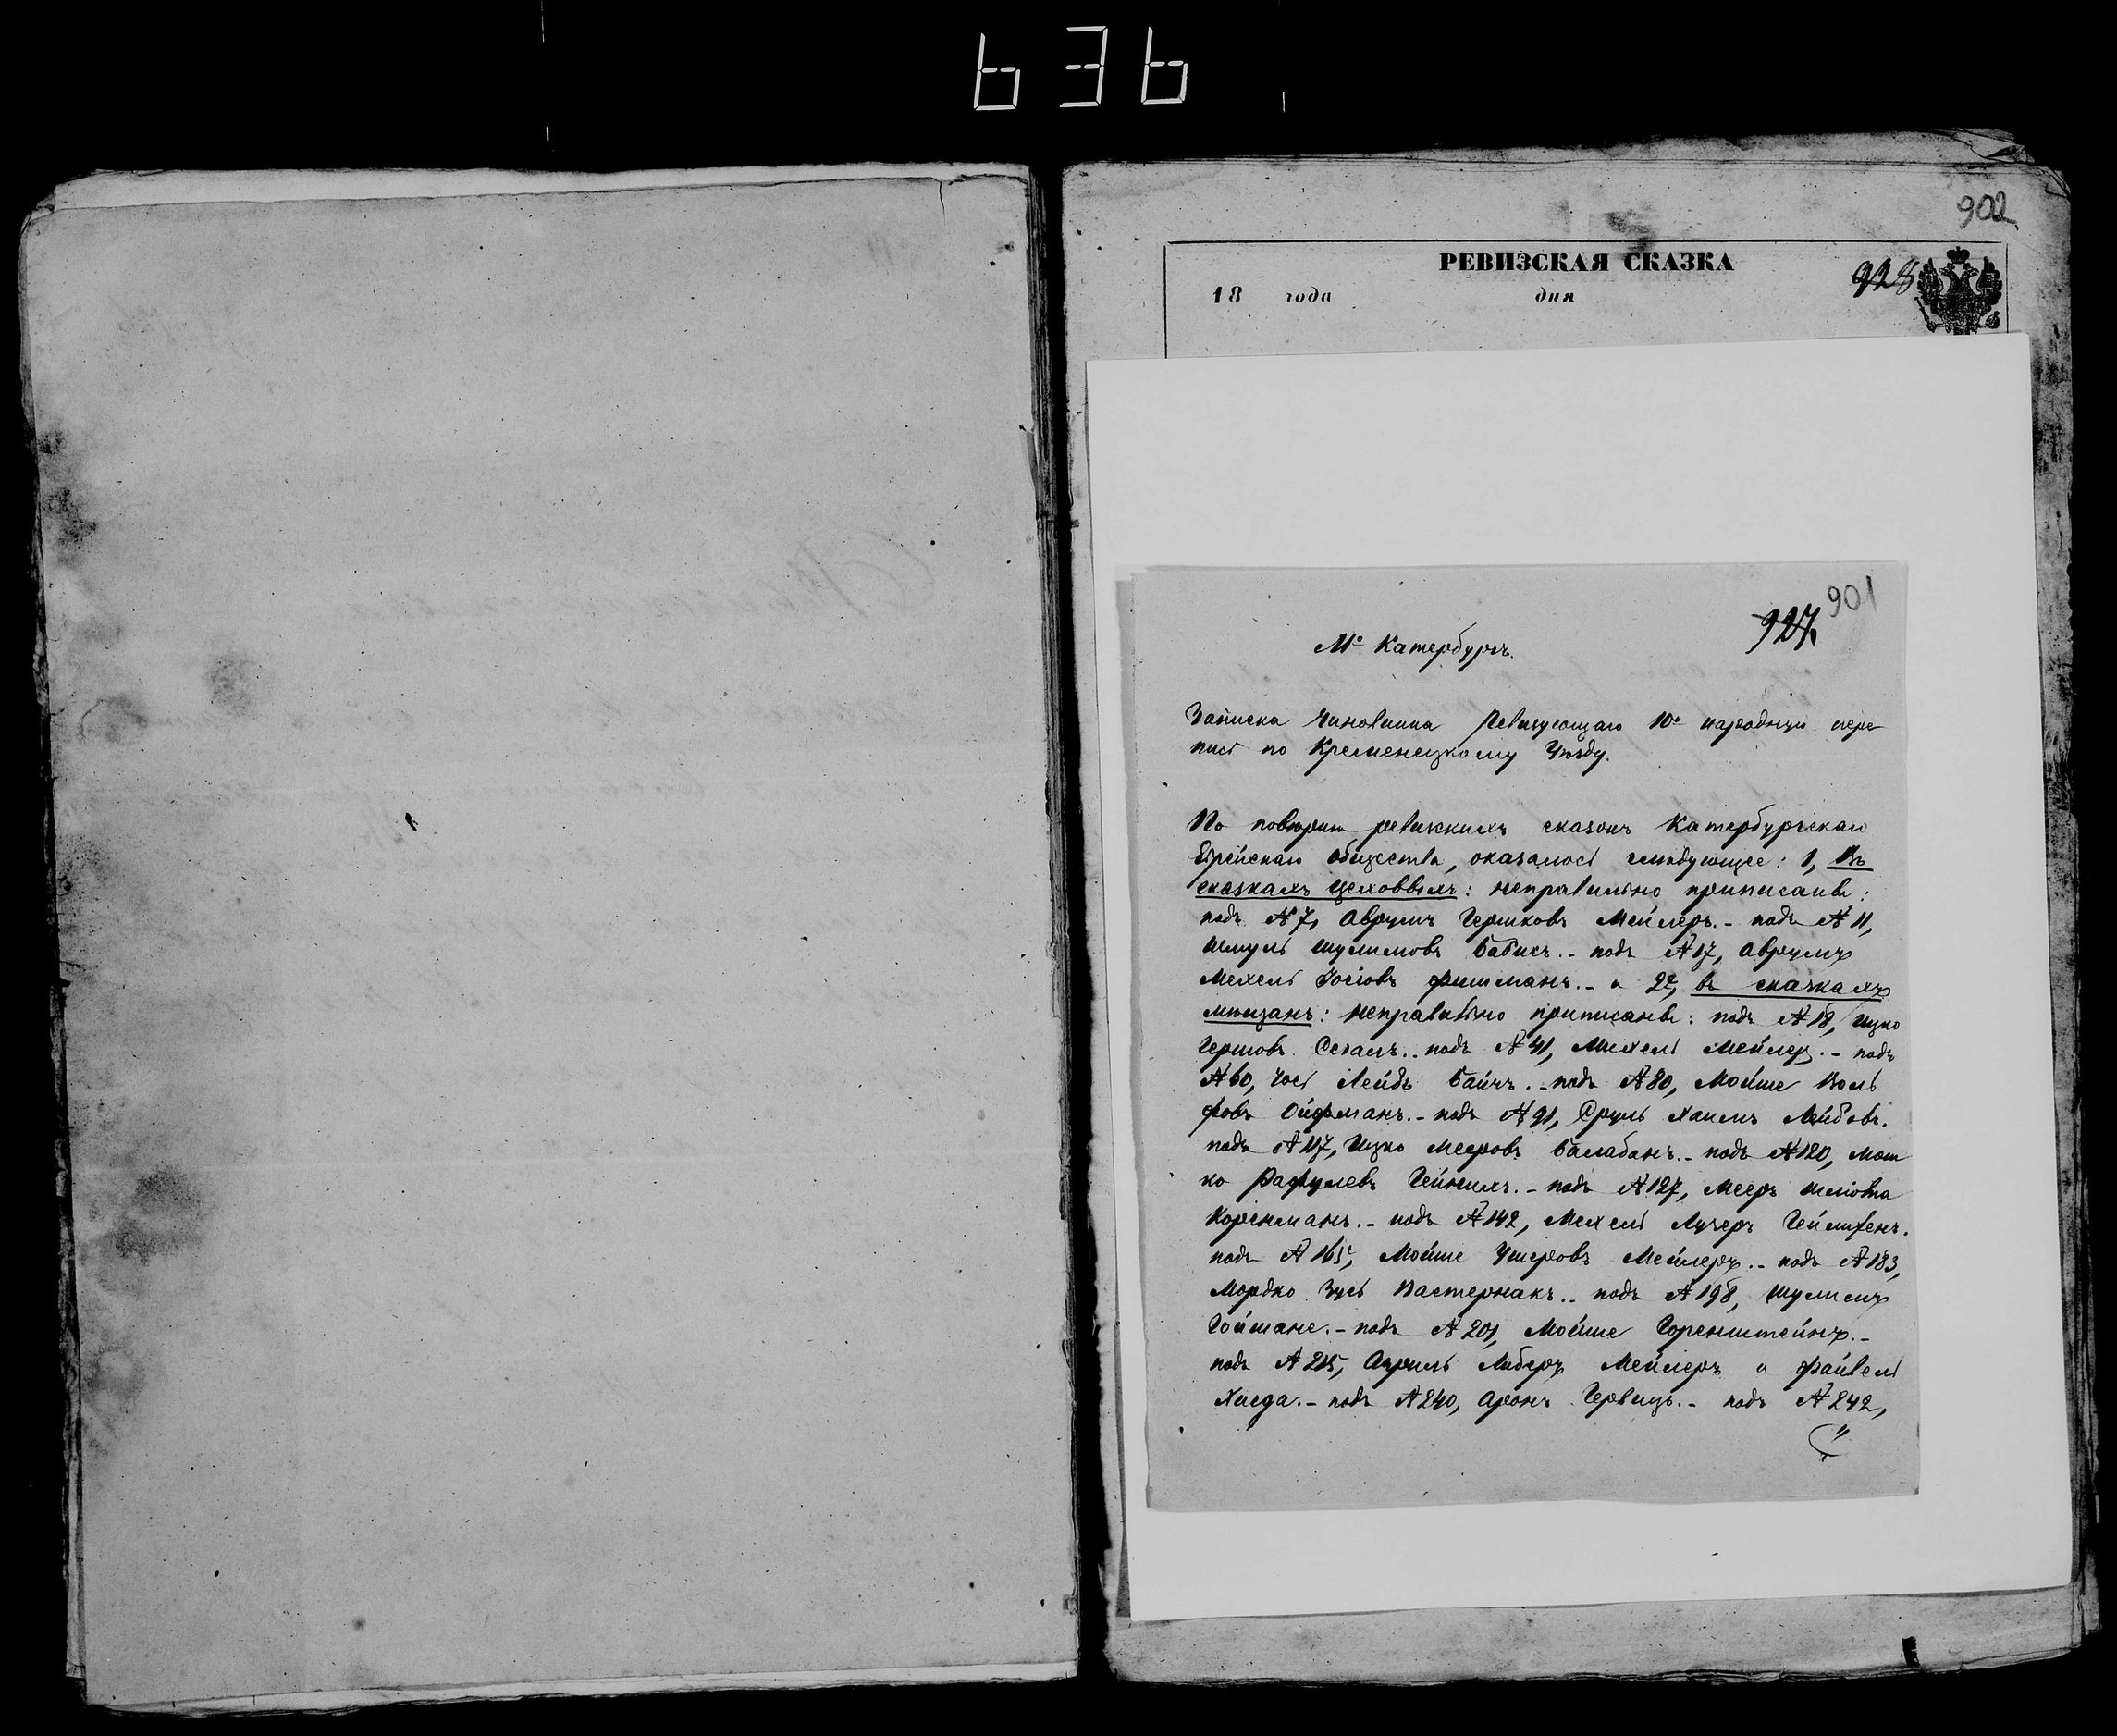 636
902
РЕВИЗСКАЯ СКАЗКА
928
18 года дня
901
927.
Мо Катербургъ.
Записка Чиновника Ревизующаго 10о народную пере
пись по Кременецкому Уѣзду.
По повѣрки ревизскихъ сказокъ Катербургскаго
Еврейскаго Общества, оказалось слѣдующее: 1, Въ
сказкахъ цеховыхъ: неправильно приписаны:
подъ № 7, Аврумъ Гершковъ Мейлеръ. - подъ № 11,
Шмуль Шулимовъ Бабисъ. - подъ № 17, Аврумъ
Мехель Іосіовъ Фишманъ. - и 2е, въ сказкахъ
мѣщанъ: неправильно приписаны: подъ № 18, Ицко
Гершовъ Сегалъ. - подъ № 41, Михель Мейлеръ. - подъ
№ 60, Іось Лейбъ Байчъ. - подъ № 80, Мойше Воль
фовъ Ойфманъ. - подъ № 91, Сруль Хаимъ Лейбовъ.
подъ № 117, Ицко Мееровъ Балабанъ. - подъ № 120, Мош
ко Рафулевъ - подъ № 127, Мееръ
Коренманъ. - подъ № 142, Мехель Лузеръ
подъ № 165, Мойше Ушеровъ Мейлеръ. - подъ № 183,
Мордко Зусь Пастернакъ. - подъ № 198, Шулимъ
Гойшане. - подъ № 201, Мойше Горенштейнъ. -
подъ № 215, Азриль Либеръ Мейлеръ и Файвель
- подъ № 240, Аронъ Гервицъ. - подъ № 242,